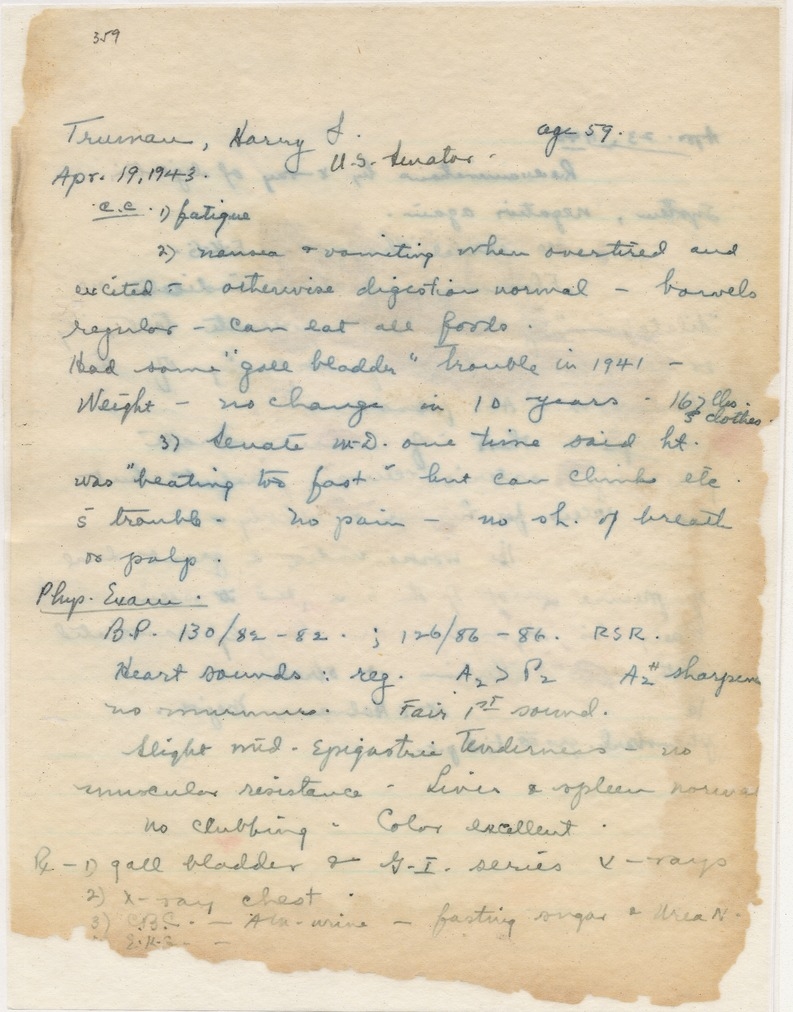 359
Truman, Harry S. age 59.
Apr. 19, 1943. U.S. Senator.
c.c. 1) fatigue
2) nausea & vomiting when overtired and
excited - otherwise digestion normal - bowels
regular - can eat all foods.
Had some "gall bladder" trouble in 1941 -
Weight - no change in 10 years - 167 lbs.
c̄ clothes.
3) Senate M.D. one time said ht.
was "beating too fast." but can climb etc.
s̄ trouble. No pain - no sh. of breath
or palp.
Phys. Exam.
B.P. 130/82-82. ; 126/86-86. RSR.
Heart sounds: reg. A2 > P2 A2# sharpened
no murmurs. Fair 1st sound.
Slight mid-Epigastric Tenderness - no
muscular resistance - Liver & spleen normal
no clubbing - Color excellent.
Rx - 1) gall bladder & G-I. series X-rays
2) X-ray chest.
3) C.B.C. - urine - fasting sugar & Urea N.
E.K.G. -